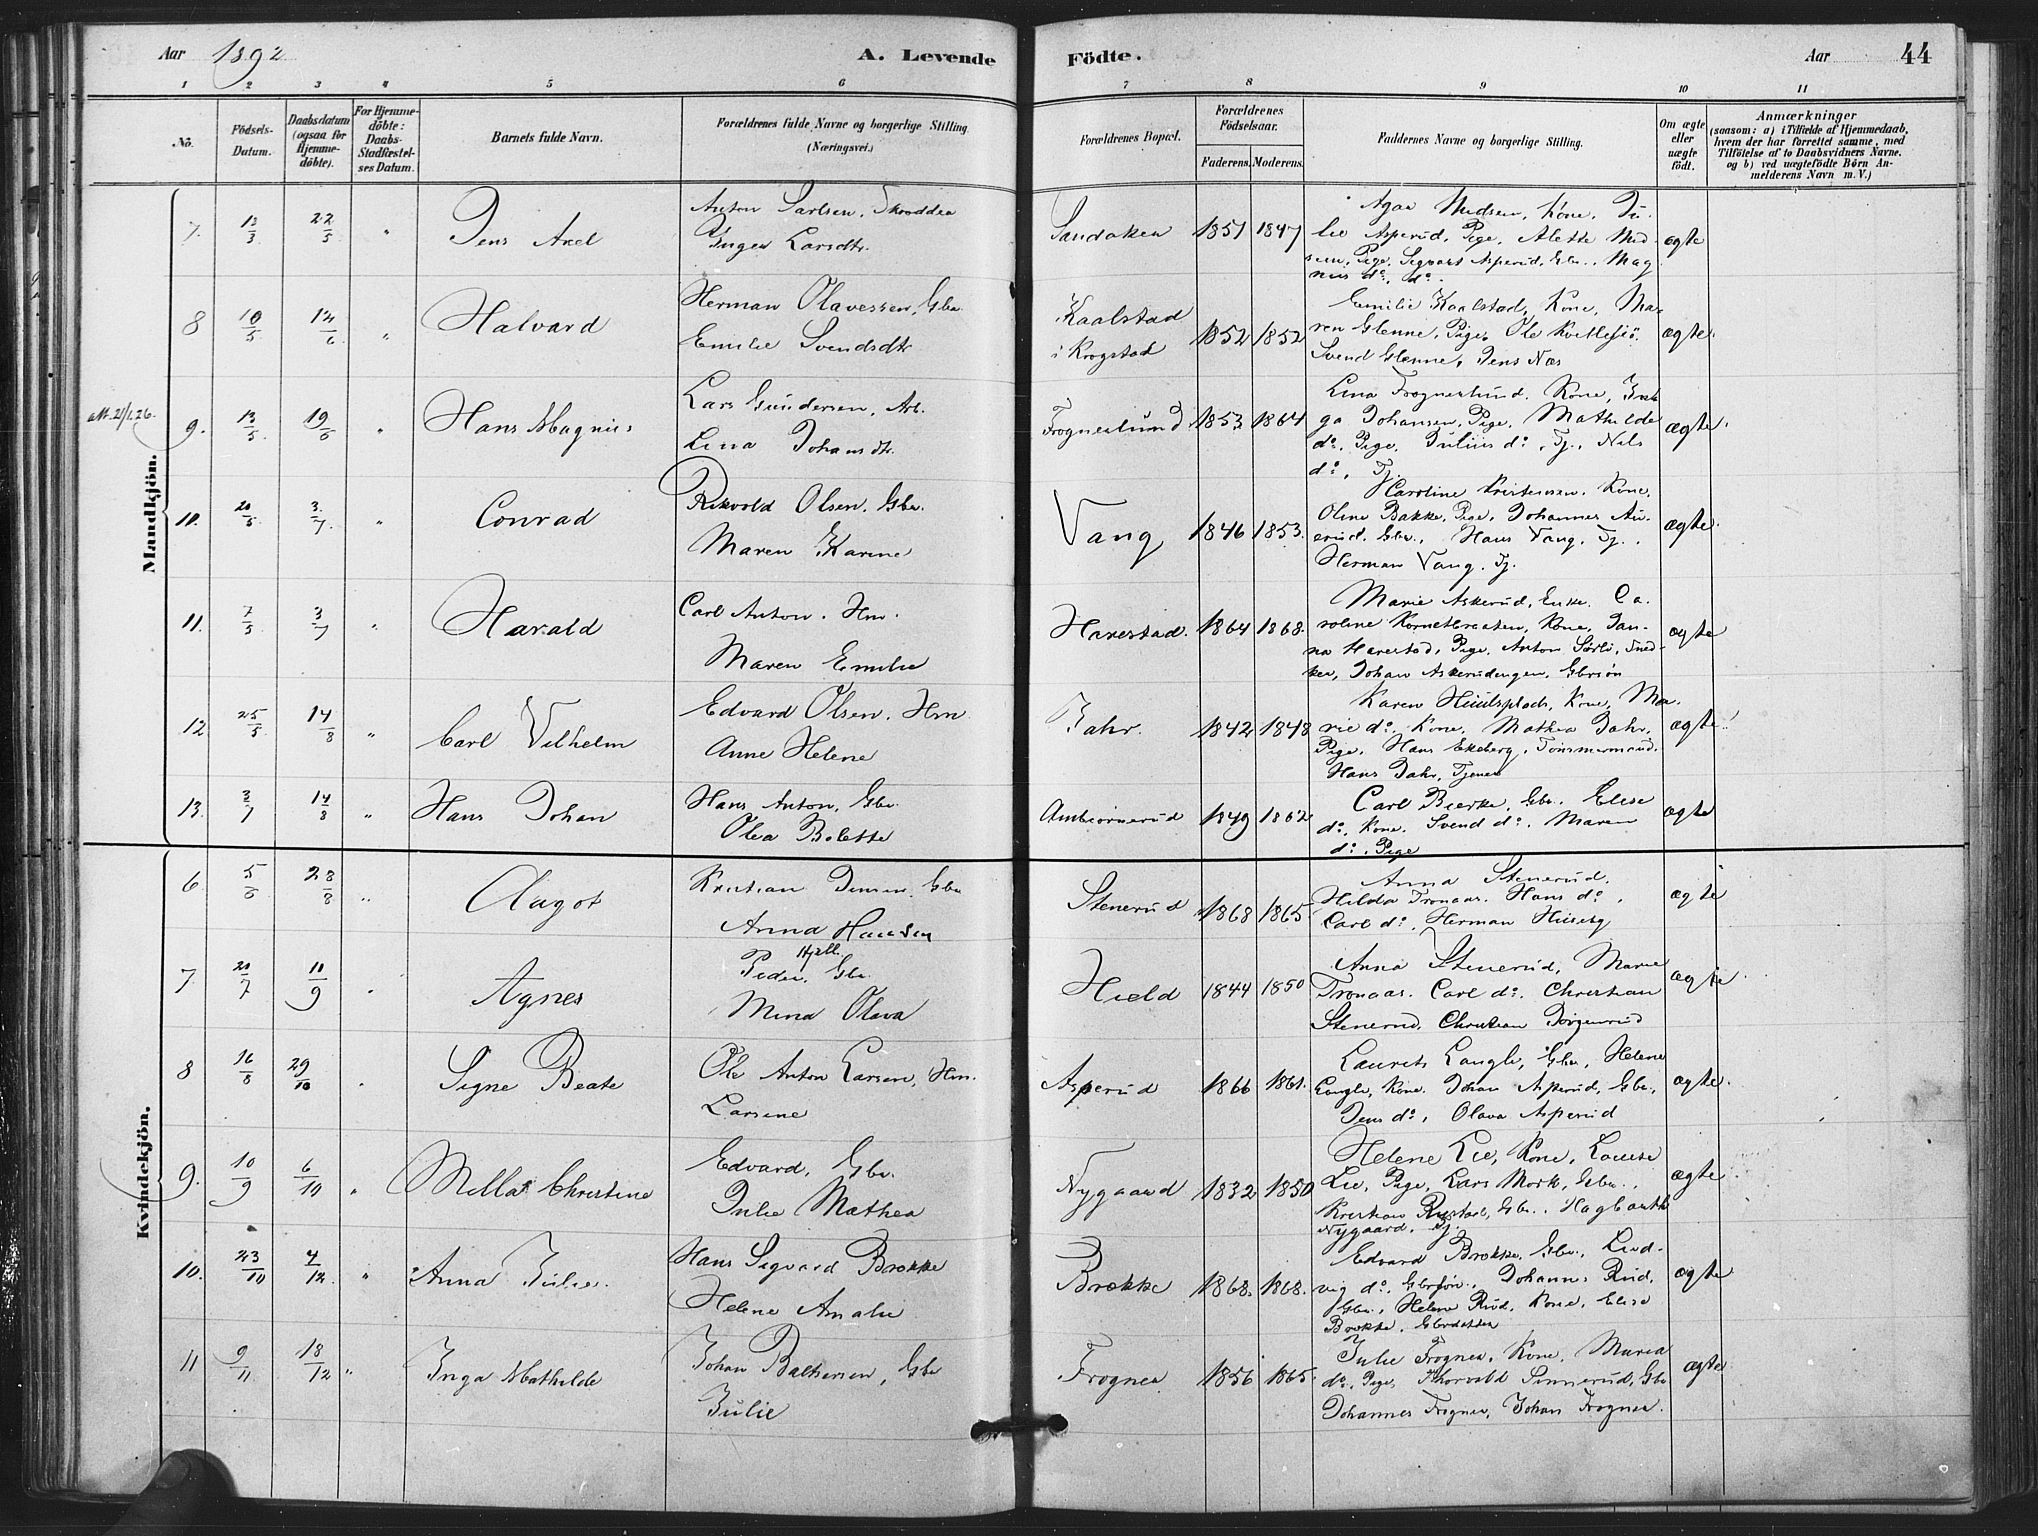 Aar 1892 A. Levende Födte. Aar 44
1 2 3 4 5 6 7 8 9 10 11
No.
Födsels-Datum.
Daabsdatum (ogsaa for Hjemme-döbte).
For Hjemme-döbte: Daabs-Stadfæstel-ses Datum.
Barnets fulde Navn.
Forældrenes fulde Navne og borgerlige Stilling (Næringsvei.)
Forældrenes Bopæl.
Forældrenes Födselsaar.
Faderens. Moderens.
Faddernes Navne og borgerlige Stilling.
Om ægte eller uægte födt.
Anmærkninger
(saasom: a) i Tilfælde af Hjemmedaab,
hvem der har forrettet samme, med
Tilföielse af to Daabsvidners Navne.
og b) ved uægtefödte Börn An-
melderens Navn m. V.)
Mandkjön.
7. 13/3 22/5 " Jens Axel
Anton Carlsen, Skrædder
Inger Larsdtr.
Sandaker 1851 1847
Agar Madsen, Kone, Ju-
lie Asperud, Pige, Alette Mad-
sen, Pige, Sigvart Asperud, Gbr., Mag
nus do, do.
ægte
8 10/5 12/6 " Halvard
Herman Olavessen, Gbr
Emilie Svendsdtr
Kaalstad
i Krogstad 1852 1852
Emilie Kaalstad, Kone, Ma-
ren Glenne, Pige, Ole
Svend Glenne, Jens Næs
ægte.
att. 21/1.26.
9. 13/5 19/6 " Hans Magnus
Lars Gundersen, Arb.
Lina Johansdtr.
Frognerlund 1853 1864
Lina Frognerlund, Kone,
ga Johansen, Pige, Mathilde
do, Pige, Julius do, Tj., Nils
do, Tj.
ægte.
10. 20/5 3/7 " Conrad
Rikvold Olsen, Gbr.
Maren Karine
Vang 1846 1853.
Caroline Kristensen, Kone,
Oline Bakke, Pige, Johannes Au-
erud, Gbr., Hans Vang, Tj.,
Herman Vang, Tj.
ægte.
11. 7/5 3/7 " Harald
Carl Anton, Hm.
Maren Emilie
Harestad. 1864 1868.
Marie Askerud, Enke, Ca-
roline Kornetbraaten, Kone, Jan-
na Harestad, Pige, Anton Sørli, Sned-
ker, Johan Askerudengen, Gbrsøn
ægte
12 25/5 14/8 " Carl Vilhelm
Edvard Olsen, Hm
Anne Helene
Dahr. 1842 1848
Karen, Kone, Ma-
rie do, Kone, Mathea Dahr,
Pige, Hans Ekeberg, Tømmermand.
Hans Dahr, Tjener
ægte.
13. 3/7 14/8 " Hans Johan
Hans Anton, Gbr.
Olea Bolette
Ambiørnerud 1849 1862
Carl Bierke, Gbr. Elise
do, Kone, Svend do, Maren
do, Pige
ægte
Kvindekjön.
6 5/6 28/8 " Aagot
Kristian Jensen, Gbr
Anna Hansen
Stenerud 1868 1865
Anna Stenerud,
Hilda Tronaas, Hans do,
Carl do, Herman Huseby
ægte
7 20/7 11/9 " Agnes
Hjell.
Peder, Gbr.
Mina Olava
Hield 1844 1850
Anna Stenerud, Marie
Tronaas, Carl do, Christian
Stenerud, Christian Jørgenrud
ægte.
8 16/8 29/10 " Signe Beate
Ole Anton Larsen, Hm.
Larsine
Asperud 1866 1861.
Laurits Langli, Gbr, Helene
Langli, Kone, Johan Asperud, Gbr,
Jens do, Olava Asperud
ægte.
9. 10/9 6/10 " Milla Christine
Edvard, Gbr.
Julie Mathea
Nygaard 1832 1850
Helene Lie, Kone, Louise
Lie, Pige, Lars Mork, Gbr.,
Kristian Rustad, Gbr., Hagbarth
Nygaard, Tj.
ægte
10. 23/10 4/12 " Anna Julie.
Hans Sigvard Brække
Helene Amalie
Brække 1868. 1868.
Edvard Brække, Gbr., Lud-
vig do, Gbrsøn, Johannes Rud,
Gbr., Helene Rud, Kone, Elise
Brække, Gbrdatter
ægte
11 9/11 18/12 " Inga Mathilde
Johan Baltersen, Gbr
Julie
Frogner 1856 1865.
Julie Frogner, Kone, Maria
do, Pige, Thorvald Sinnerud, Gbr
Johannes Frogner, Johan Frogner.
ægte